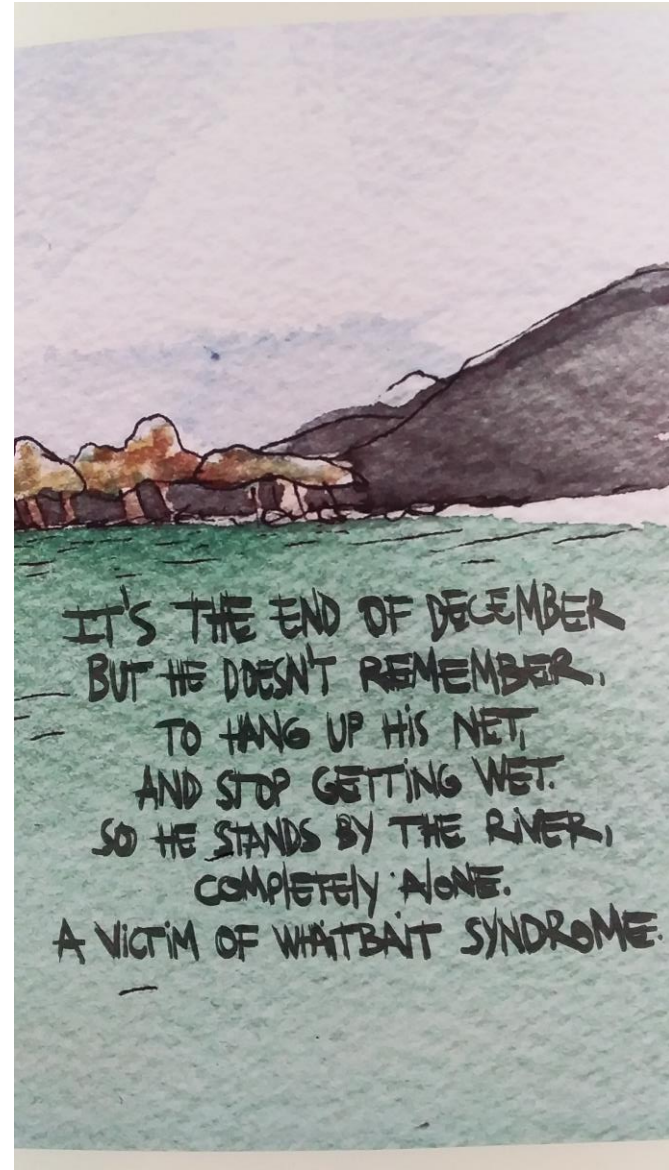 IT'S THE END OF DECEMBER
BUT HE DOESN'T REMEMBER,
TO HANG UP HIS NET,
AND STOP GETTING WET.
SO HE STANDS BY THE RIVER,
COMPLETELY ALONE.
A VICTIM OF WHAITBAIT SYNDROME.